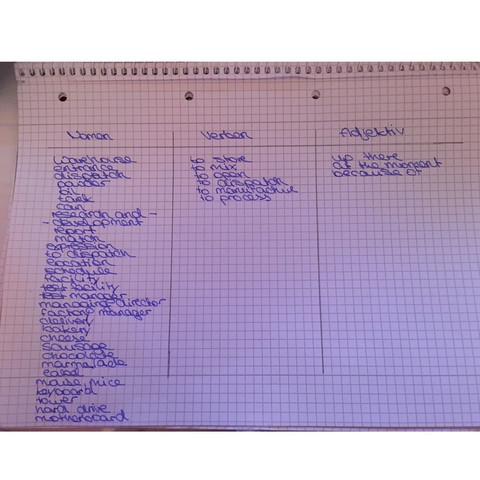 Nomen Verben Adjektiv
warehouse
entrance
dispatch
powder
oil
tank
can
research and -
- development
report
match
expression
to dispatch
location
schedule
facility
test facility
manager
managing director
factory manager
delivery
bakery
cheese
sausage
chocolate
marmelade
mouse, mice
keyboard
tower
hard drive
motherboard
to store
to mix
to open
to dispatch
to manufacture
to process
up there
at the moment
because of